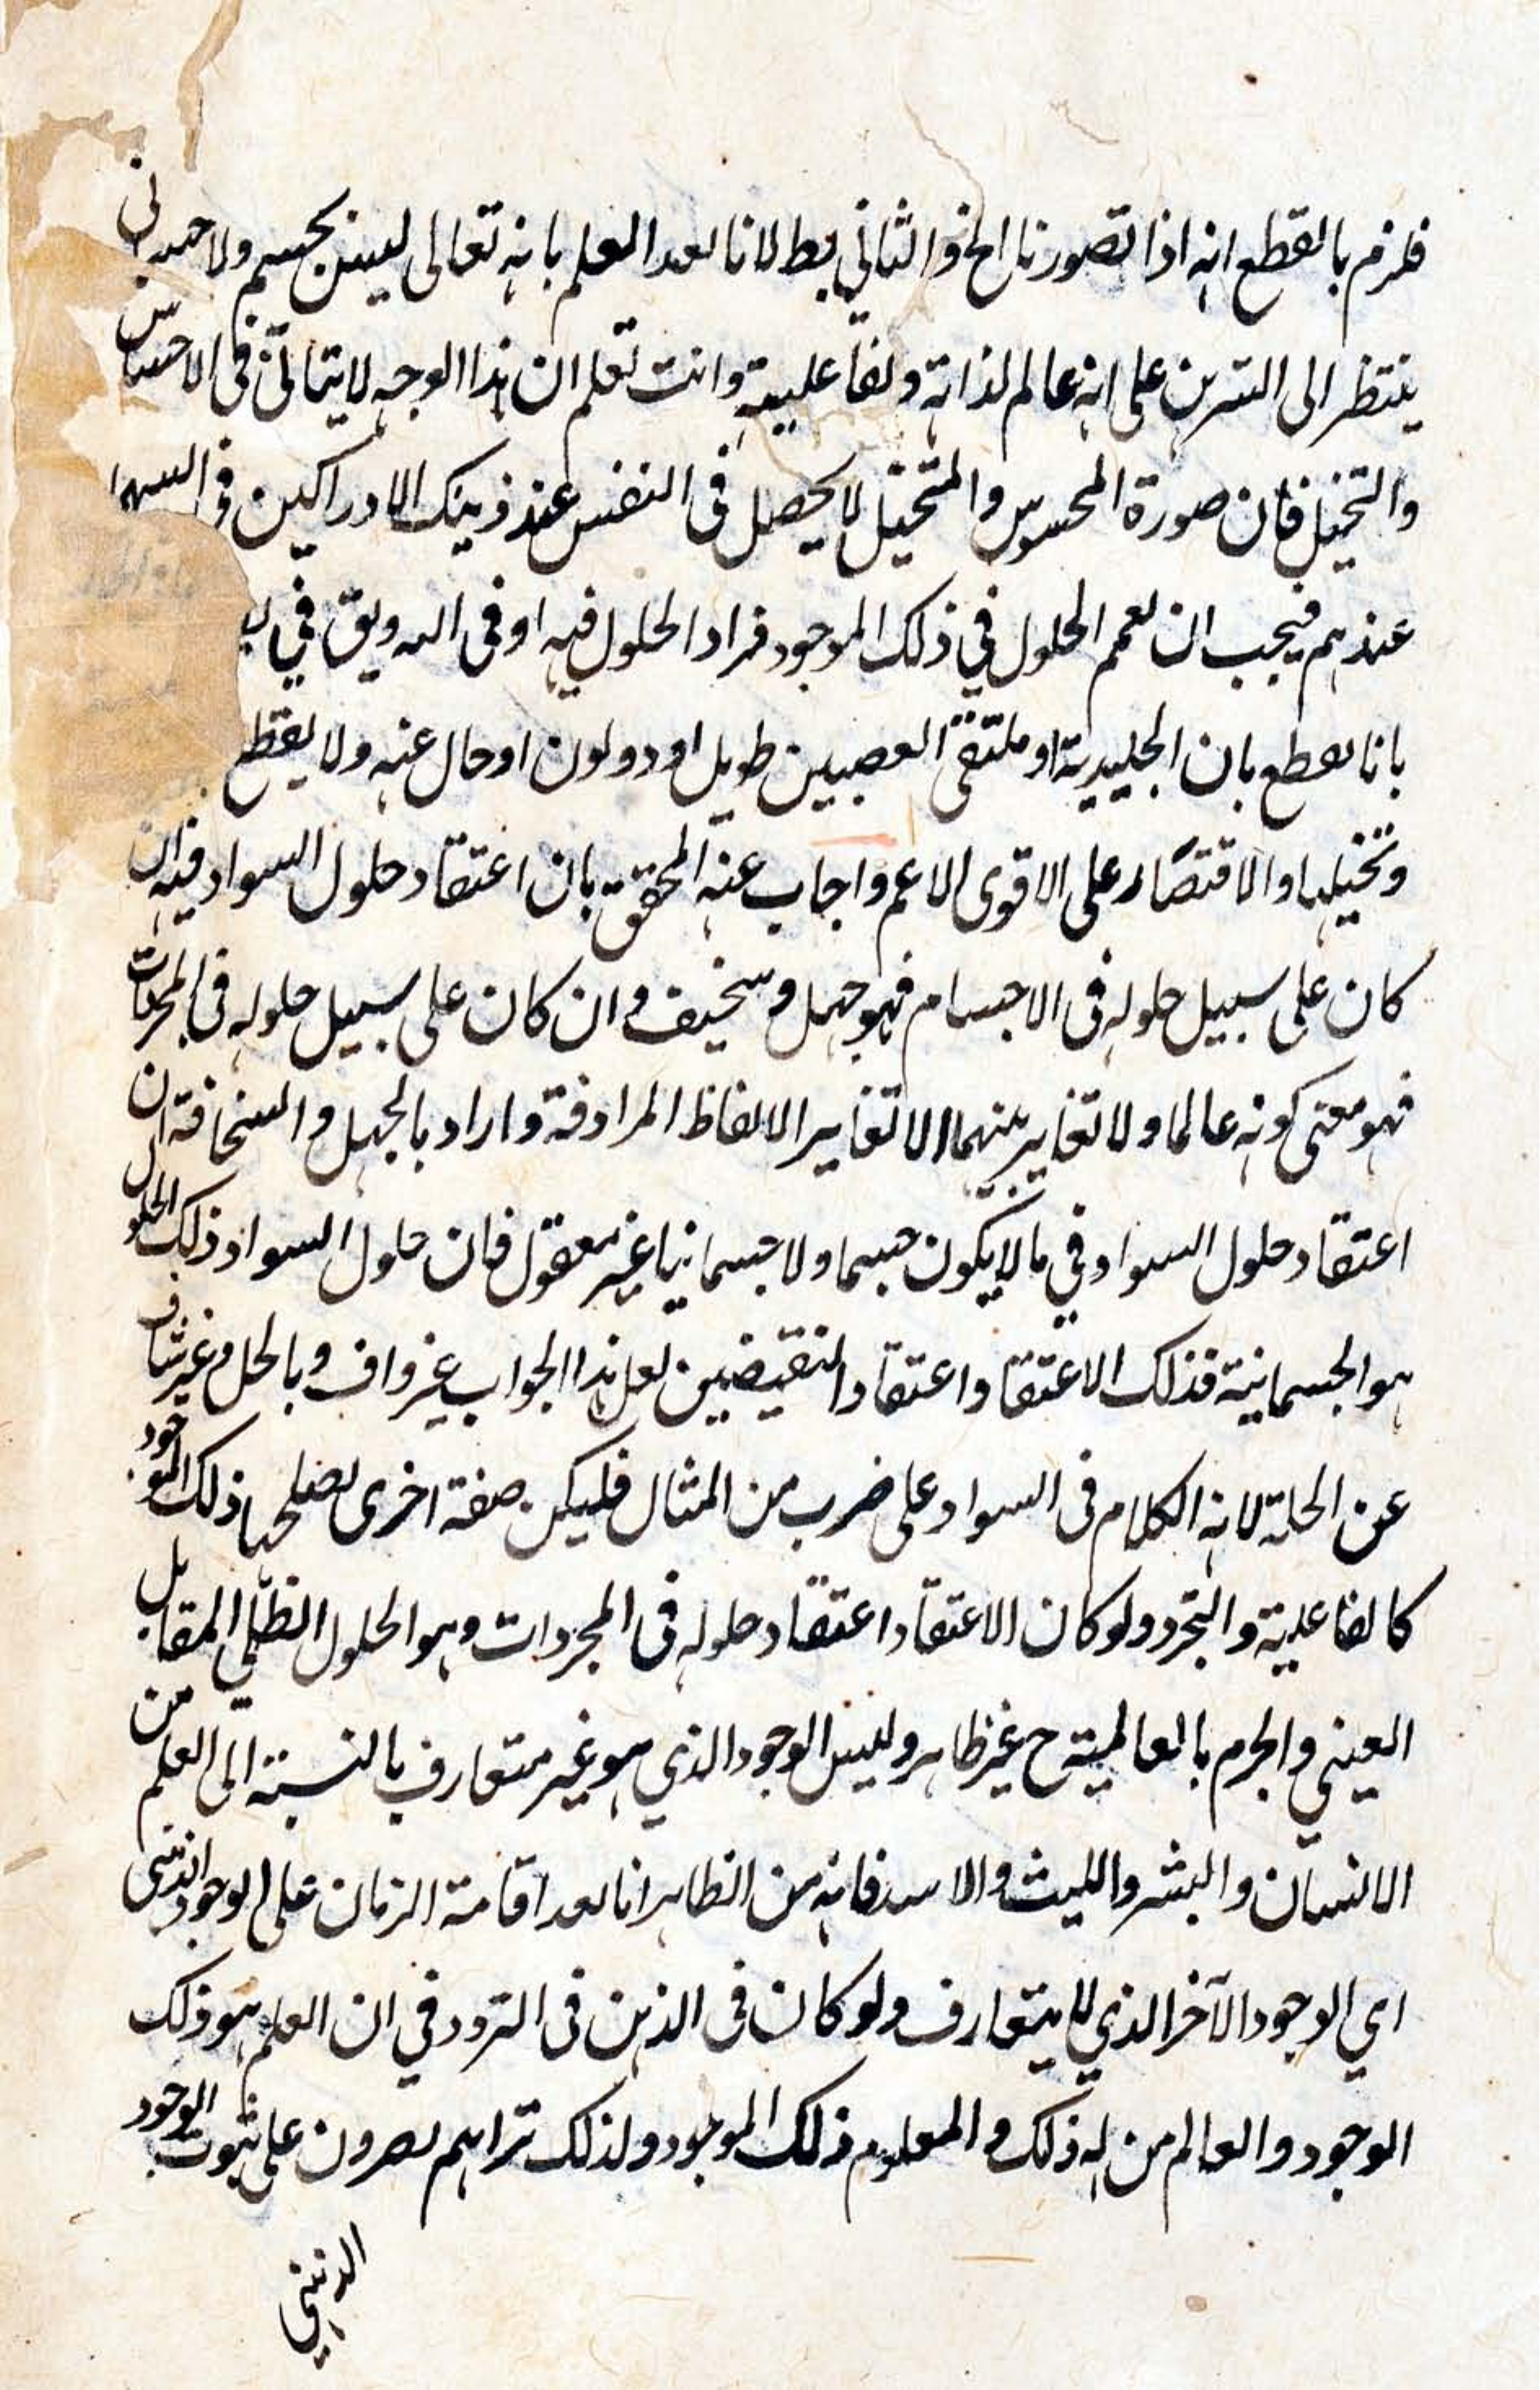 فلزم بالقطع انه اذا تصورنا الخ والثاني بط لانا بعد العلم بانه تعالى ليس بجسم ولا جسماني
ينتظر الى البرهن على انه عالم لذاته ولفاعليته وانت تعلم ان هذا الوجه لا يتمالى في الاحساس
والتخيل فان صورة المحسوس والمتخيل لا يحصل في النفس عند ذينك الادراكين
عندهم فيجب ان يعمم الحلول في ذلك الموجود فراد الحلول فيه او في اله ويق في
بانا نقطع بان الجليدية او ملتقى العصبيين طويل او ذو لون او حال عنه ولا يقطع
وتخيلها والاقتصار على الاقوى الاعم واجاب عنه المحقق بان اعتقاد حلول السواد فيه ان
كان على سبيل حلوله في الاجسام فهو جهل وسخيف وان كان على سبيل حلوله في المجردات
فهو معنى كونه عالما ولا تغاير بينهما الا تغاير الالفاظ المرادفة واراد بالجهل والسخافة ان
اعتقاد حلول السواد في ما لا يكون جسما ولا جسمانيا غير معقول فان حلول السواد ذلك الحلول
هو الجسمانية فذلك الاعتقاد اعتقاد النقيضين لعل هذا الجواب غير واف وبالحل وغير شاف
عن الحلة لانه الكلام في السواد على ضرب من المثال فليكن صفة اخرى يصلح بها ذلك الموجود
كالفاعلية والتجرد ولو كان الاعتقاد اعتقاد حلوله في المجردات وهو الحلول الظلي المقابل
العيني والجزم بالعالمية ح غير ظاهر وليس الوجود الذي هو غير متعارف بالنسبة الى العلم من
الانسان والبشر والليث والاسد فانه من الظاهر انا بعد اقامة الزمان على الوجود الذهني
اي الوجود الآخر الذي لا يتعارف ولو كان في الذهن في التردد في ان العلم هو ذلك
الوجود والعالم من له ذلك والمعلوم ذلك الموجود ولذلك تراهم يصرون على ثبوت الوجود
الذهني